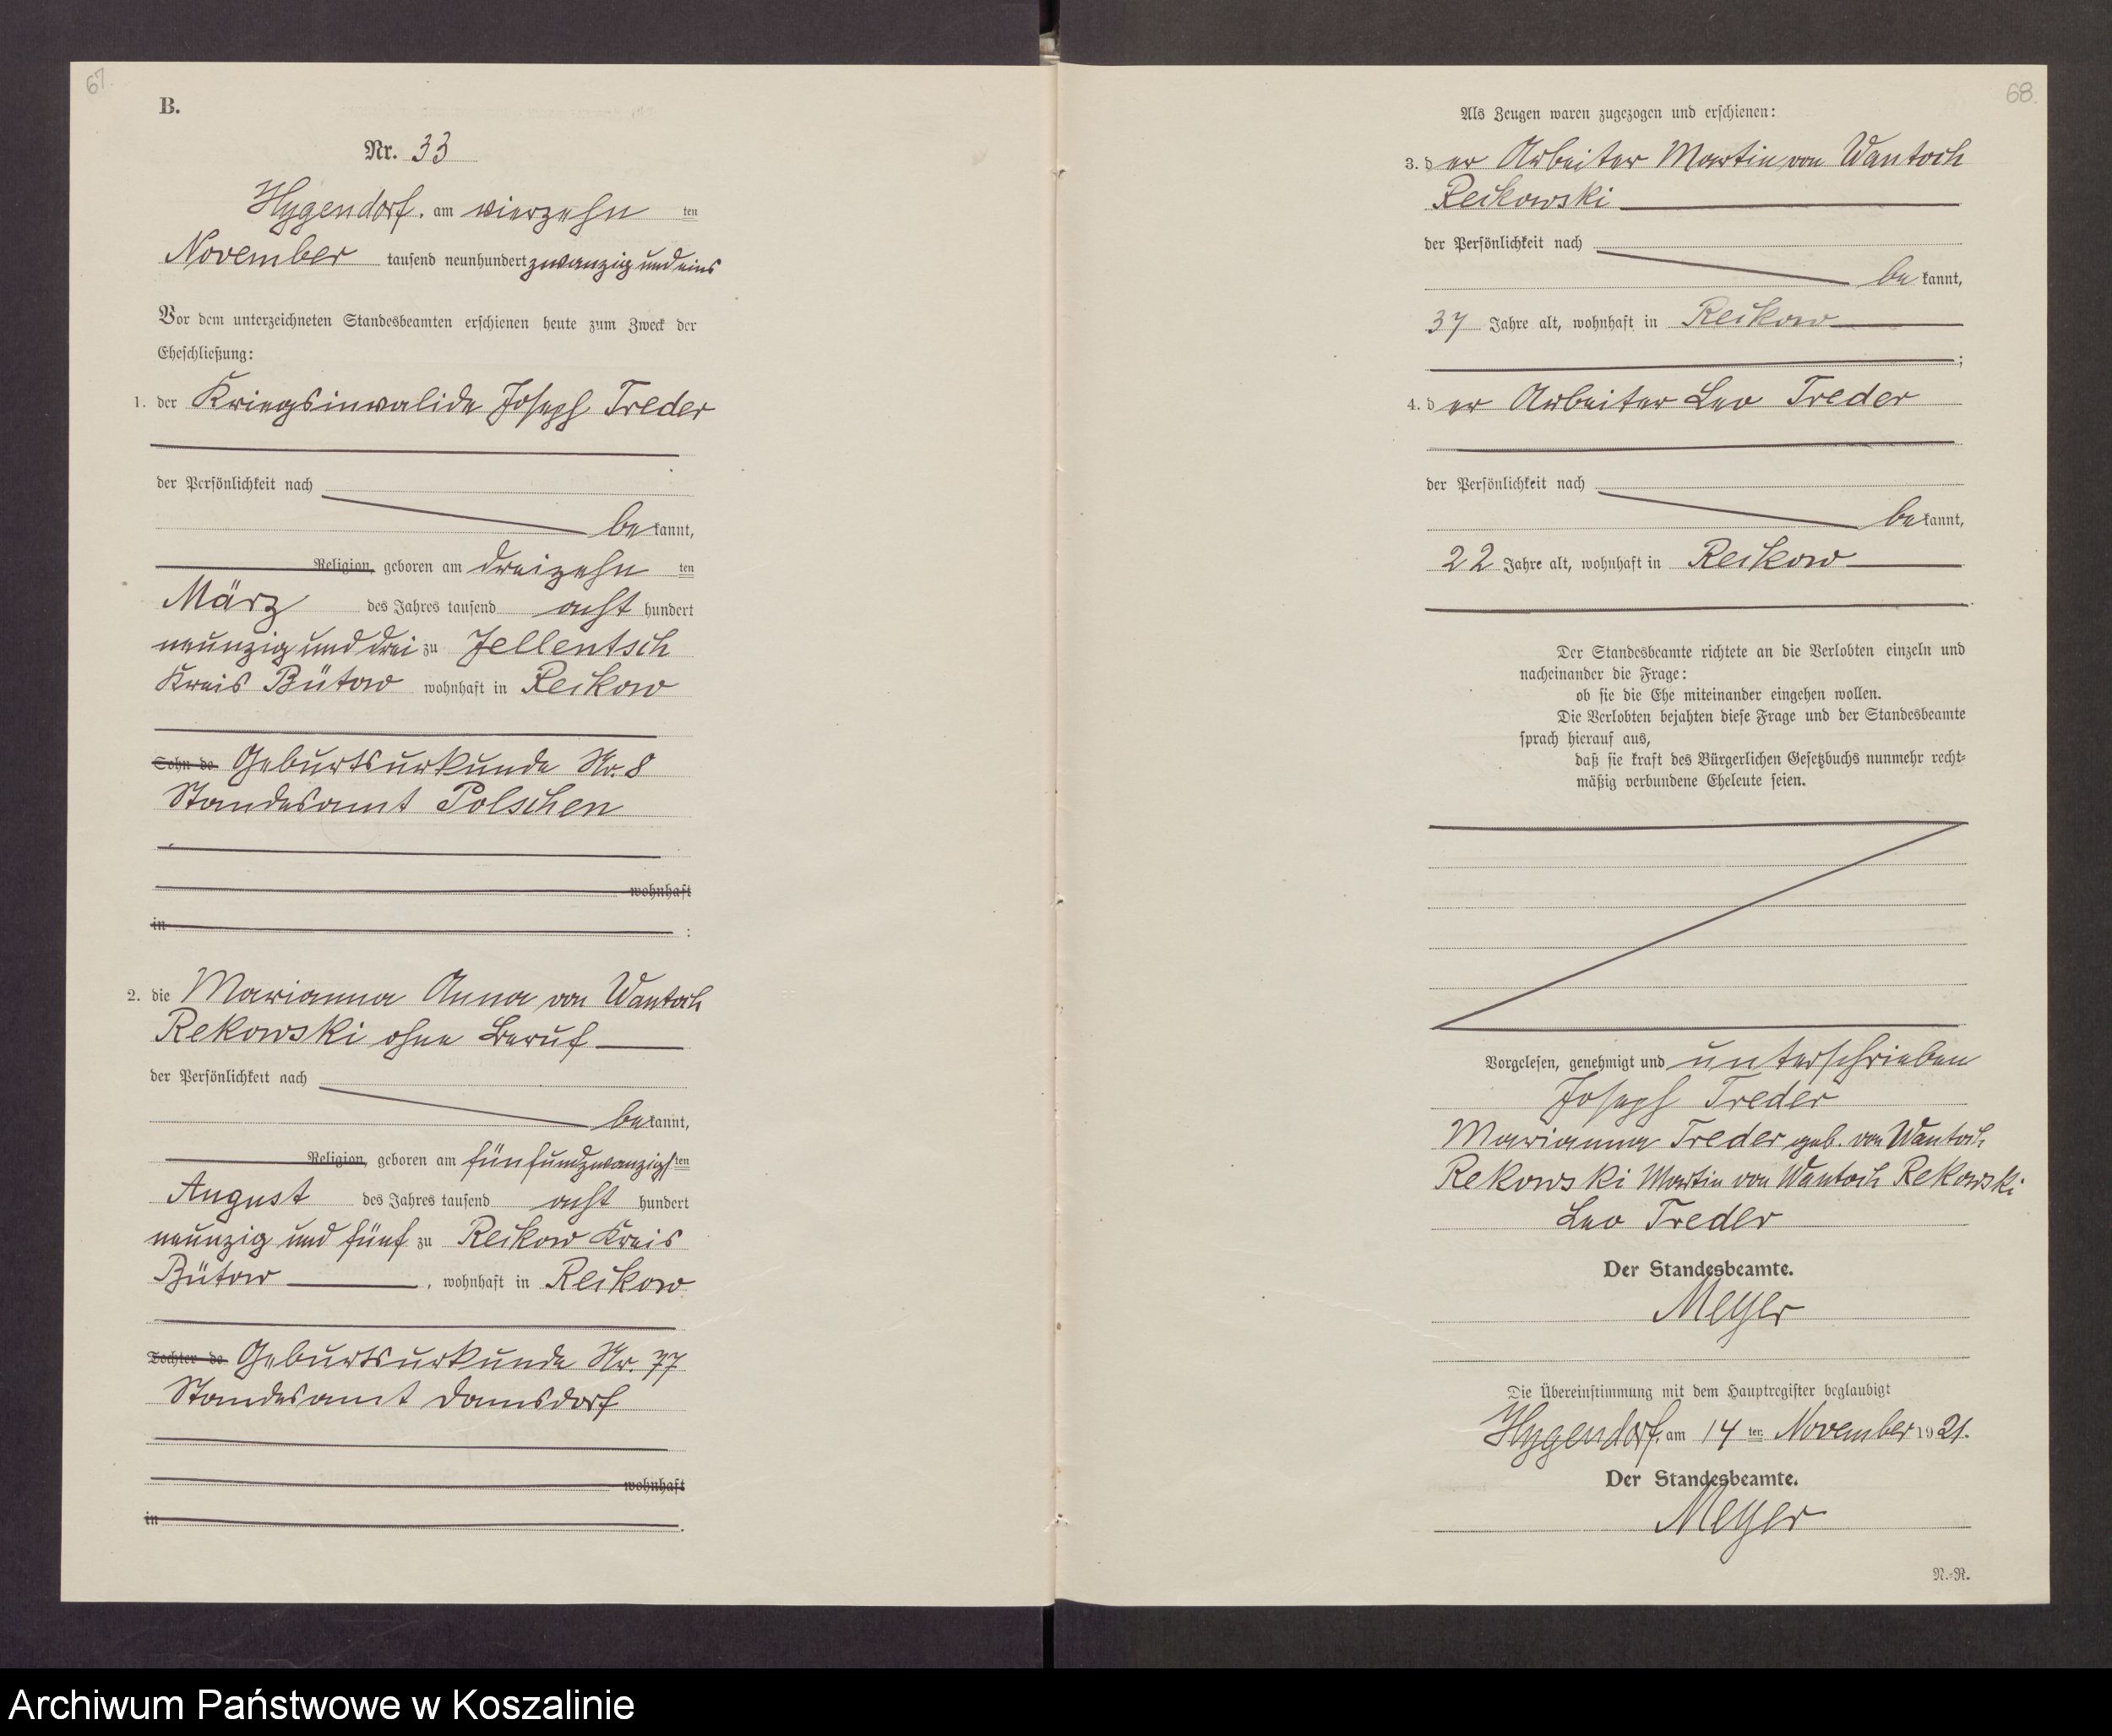 67.
B.
Nr. 33
Hygendorf. am vierzehn ten
November tausend neunhundert zwanzig und eins
Vor dem unterzeichneten Standesbeamten erschienen heute zum Zweck der
Eheschließung:
1. der Kriegsinvalide Joseph Treder
der Persönlichkeit nach
be kannt,
Religion, geboren am dreizehn ten
März des Jahres tausend acht hundert
neunzig und drei zu Jellentsch
Kreis Bütow wohnhaft in Reckow
Sohn de Geburtsurkunde Nr. 8
Standesamt Polschen
wohnhaft
in :
2. die Marianna Anna von Wantoch
Rekowski ohne Beruf
der Persönlichkeit nach
be kannt,
Religion, geboren am fünfundzwanzigs ten
August des Jahres tausend acht hundert
neunzig und fünf zu Reckow Kreis
Bütow , wohnhaft in Reckow
Tochter de Geburtsurkunde Nr. 77
Standesamt Damsdorf
wohnhaft
in .
68.
Als Zeugen waren zugezogen und erschienen:
3. d er Arbeiter Martin von Wantoch
Reckowski
der Persönlichkeit nach
be kannt,
37 Jahre alt, wohnhaft in Reckow
;
4. d er Arbeiter Leo Treder
der Persönlichkeit nach
be kannt,
22 Jahre alt, wohnhaft in Reckow
Der Standesbeamte richtete an die Verlobten einzeln und
nacheinander die Frage:
ob sie die Ehe miteinander eingehen wollen.
Die Verlobten bejahten diese Frage und der Standesbeamte
sprach hierauf aus,
daß sie kraft des Bürgerlichen Gesetzbuchs nunmehr recht-
mäßig verbundene Eheleute seien.
Vorgelesen, genehmigt und unterschrieben
Joseph Treder
Marianna Treder geb. von Wantoch
Rekowski Martin von Wantoch Rekowski
Leo Treder
Der Standesbeamte.
Meyer
Die Übereinstimmung mit dem Hauptregister beglaubigt
Hygendorf, am 14 ten November 1921.
Der Standesbeamte.
Meyer
N.-R.
Archiwum Państwowe w Koszalinie